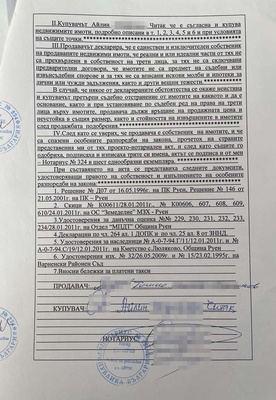 II.Купувачът Айлин Читак че е съгласна и купува
недвижимите имоти, подробно описани в т. 1, 2, 3, 4, 5 и 6 при условията
на същите точки.
III.Продавачът декларира, че е единствен и изключителен собственик
на продаваните недвижими имоти, че реални и или идеални части от тях не
са прехвърляни в собственост на трети лица, за тях не са сключвани
предварителни договори, че имотите не са предмет на съдебни или
извънсъдебни спорове и за тях са вписани искови молби и ипотеки за
лични или чужди задължения, както и други вещни тежести.
В случай, че някое от декларираните обстоятелства се окаже неистина и
купувачът претърпи съдебно отстранение от имотите на каквото и да е
основание, както и при установяване по съдебен ред на права на трети
лица върху имотите, продавачът дължи връщане на продажната цена и
неустойка в същия размер, както и стойността на извършените в имотите
след продажбата подобрения.
IV.След като се уверих, че продавача е собственик на имотите, и че
са спазени особените разпоредби на закона, страните по акта се
представени ми от тях проекто-нотариален акт, и след като същите го
одобриха, подписаха и написаха трите си имена, актът се подписа и от мен
– Нотариус № 324 в шест еднообразни екземпляра.
При съставянето на акта се представиха следните документи,
удостоверяващи правото на собственост и изпълнението на особените
разпоредби на закона:
1. Решение № Д07 от 16.05.1996г. на ПК Руен, Решение № 146 от
21.05.2001г. на ПК – Руен
2. Скици № К00611/28.01.2011г., № К00606, 607, 608, 609,
610/24.01.2011г. на ОС "Земеделие" МЗХ - Руен
3.Удостоверения за данъчна оценка №№ 229, 230, 231, 232, 233,
234/28.01.2011г. на Отдел "МПДТ" Община Руен
4.Декларации по чл. 264 ал. 1 ДОПК и по чл. 25 ал. 8 от ЗННД.
5.Удостоверения за наследници № А-0-7-94.Г/11/12.01.2011г. и №
А-0-7-94.С/19/12.01.2011г. на Кметство с.Люляково, Община Руен
6. Удостоверения изх. № 32/26.05.2009г. и № 15/23.02.1995г. на
Варненски Районен Съд
7.Вносни бележки за платени такси
ПРОДАВАЧ:
КУПУВАЧ: Айлин Читак
НОТАРИУС: